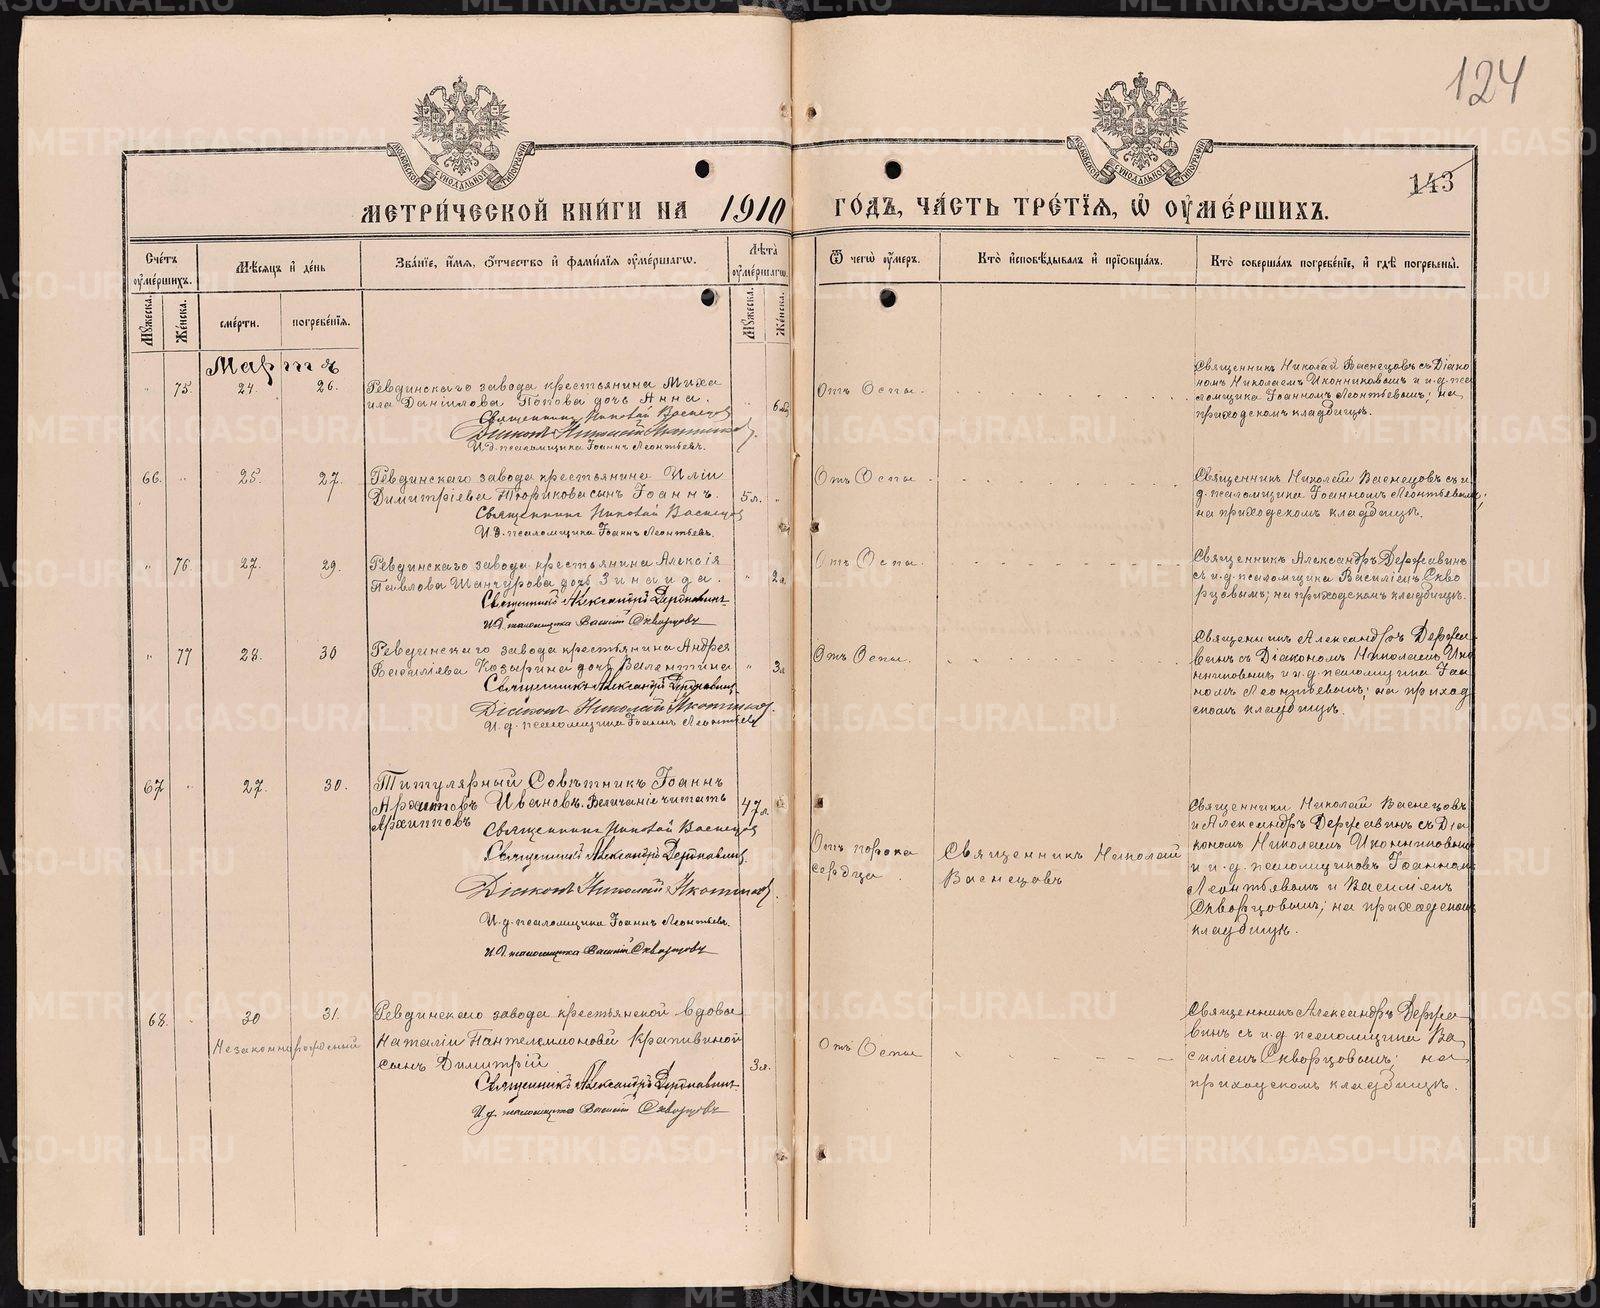 124
143
МОСКОВСКОЙ СѴНОДАЛЬНОЙ ТИПОГРАФІИ
МОСКОВСКОЙ СѴНОДАЛЬНОЙ ТИПОГРАФІИ
МЕТРИ́ЧЕСКОЙ КНИ́ГИ НА 1910 ГО́ДЪ, ЧА́СТЬ ТРЕ́ТІЯ, Ѡ ОУМЕ́РШИХЪ.
Сче́тъ оуме́ршихъ.
Мѣсяцъ и де́нь
Зва́ніе, и́мя, о́тчество и фами́лія оуме́ршагѡ.
Лѣта̀ оуме́ршагѡ.
Ѿ чегѡ̀ оу́меръ.
Кто̀ исповѣ́дывалъ и пріѡбща́лъ.
Кто̀ соверша́лъ погребе́ніе, и гдѣ̀ погребены̀.
Мꙋ́жеска. Же́нска. сме́рти. погребе́нія. Мꙋ́жеска. Же́нска.
Марта
„ 75. 24. 26. Ревдинскаго завода крестьянина Миха
ила Даніилова Попова дочь Анна. „ 6 мѣс.
Священникъ Николай Васнецовъ
Діаконъ Николай Иконниковъ.
И. д. псаломщика Іоаннъ Леонтьевъ.
Отъ Оспы.
Священникъ Николай Васнецовъ съ Діако
номъ Николаемъ Иконниковымъ и и. д. пса
ломщика Іоанномъ Леонтьевымъ; на
приходскомъ кладбищѣ.
66. „ 25. 27. Ревдинскаго завода крестьянина Иліи
Димитріева Тюрикова сынъ Іоаннъ. 5 л. „
Священникъ Николай Васнецовъ
И. д. псаломщика Іоаннъ Леонтьевъ.
Отъ Оспы.
Священникъ Николай Васнецовъ съ и.
д. псаломщика Іоанномъ Леонтьевымъ;
на приходскомъ кладбищѣ.
„ 76. 27. 29. Ревдинскаго завода крестьянина Алексія
Павлова Шанчурова дочь Зинаида. „ 2 л.
Священникъ Александръ Державинъ
И. д. псаломщика Василій Скворцовъ
Отъ Оспы.
Священникъ Александръ Державинъ
съ и. д. псаломщика Василіемъ Сквор
цовымъ; на приходскомъ кладбищѣ.
„ 77 28. 30 Ревдинскаго завода крестьянина Андрея
Василіева Козырина дочь Валентина „ 3 л.
Священникъ Александръ Державинъ
Діаконъ Николай Иконниковъ.
И. д. псаломщика Іоаннъ Леонтьевъ
Отъ Оспы.
Священникъ Александръ Держа
винъ съ Діакономъ Николаемъ Ико
нниковымъ и и. д. псаломщика Іоан
номъ Леонтьевымъ; на приход
скомъ кладбищѣ.
67 „ 27. 30. Титулярный Совѣтникъ Іоаннъ
Архиповъ Ивановъ. Величаніе читать 47 л.
Архипповъ
Священникъ Николай Васнецовъ
Священникъ Александръ Державинъ.
Діаконъ Николай Иконниковъ.
И. д. псаломщика Іоаннъ Леонтьевъ.
И. д. псаломщика Василій Скворцовъ
Отъ порока
сердца.
Священникъ Николай
Васнецовъ
Священники Николай Васнецовъ
и Александръ Державинъ съ Діа
кономъ Николаемъ Иконниковымъ
и и. д. псаломщиковъ Іоанномъ
Леонтьевымъ и Василіемъ
Скворцовымъ; на приходскомъ
кладбищѣ.
68. „ 30 31. Ревдинскаго завода крестьянской вдовы
Незаконнорожденный
Наталіи Пантелеимоновой Крапивиной
сынъ Димитрій 3 л.
Священникъ Александръ Державинъ
И. д. псаломщика Василій Скворцовъ
Отъ Оспы
Священникъ Александръ Держа
винъ съ и. д. псаломщика Ва
силіемъ Скворцовымъ; на
приходскомъ кладбищѣ.
METRIKI.GASO-URAL.RU